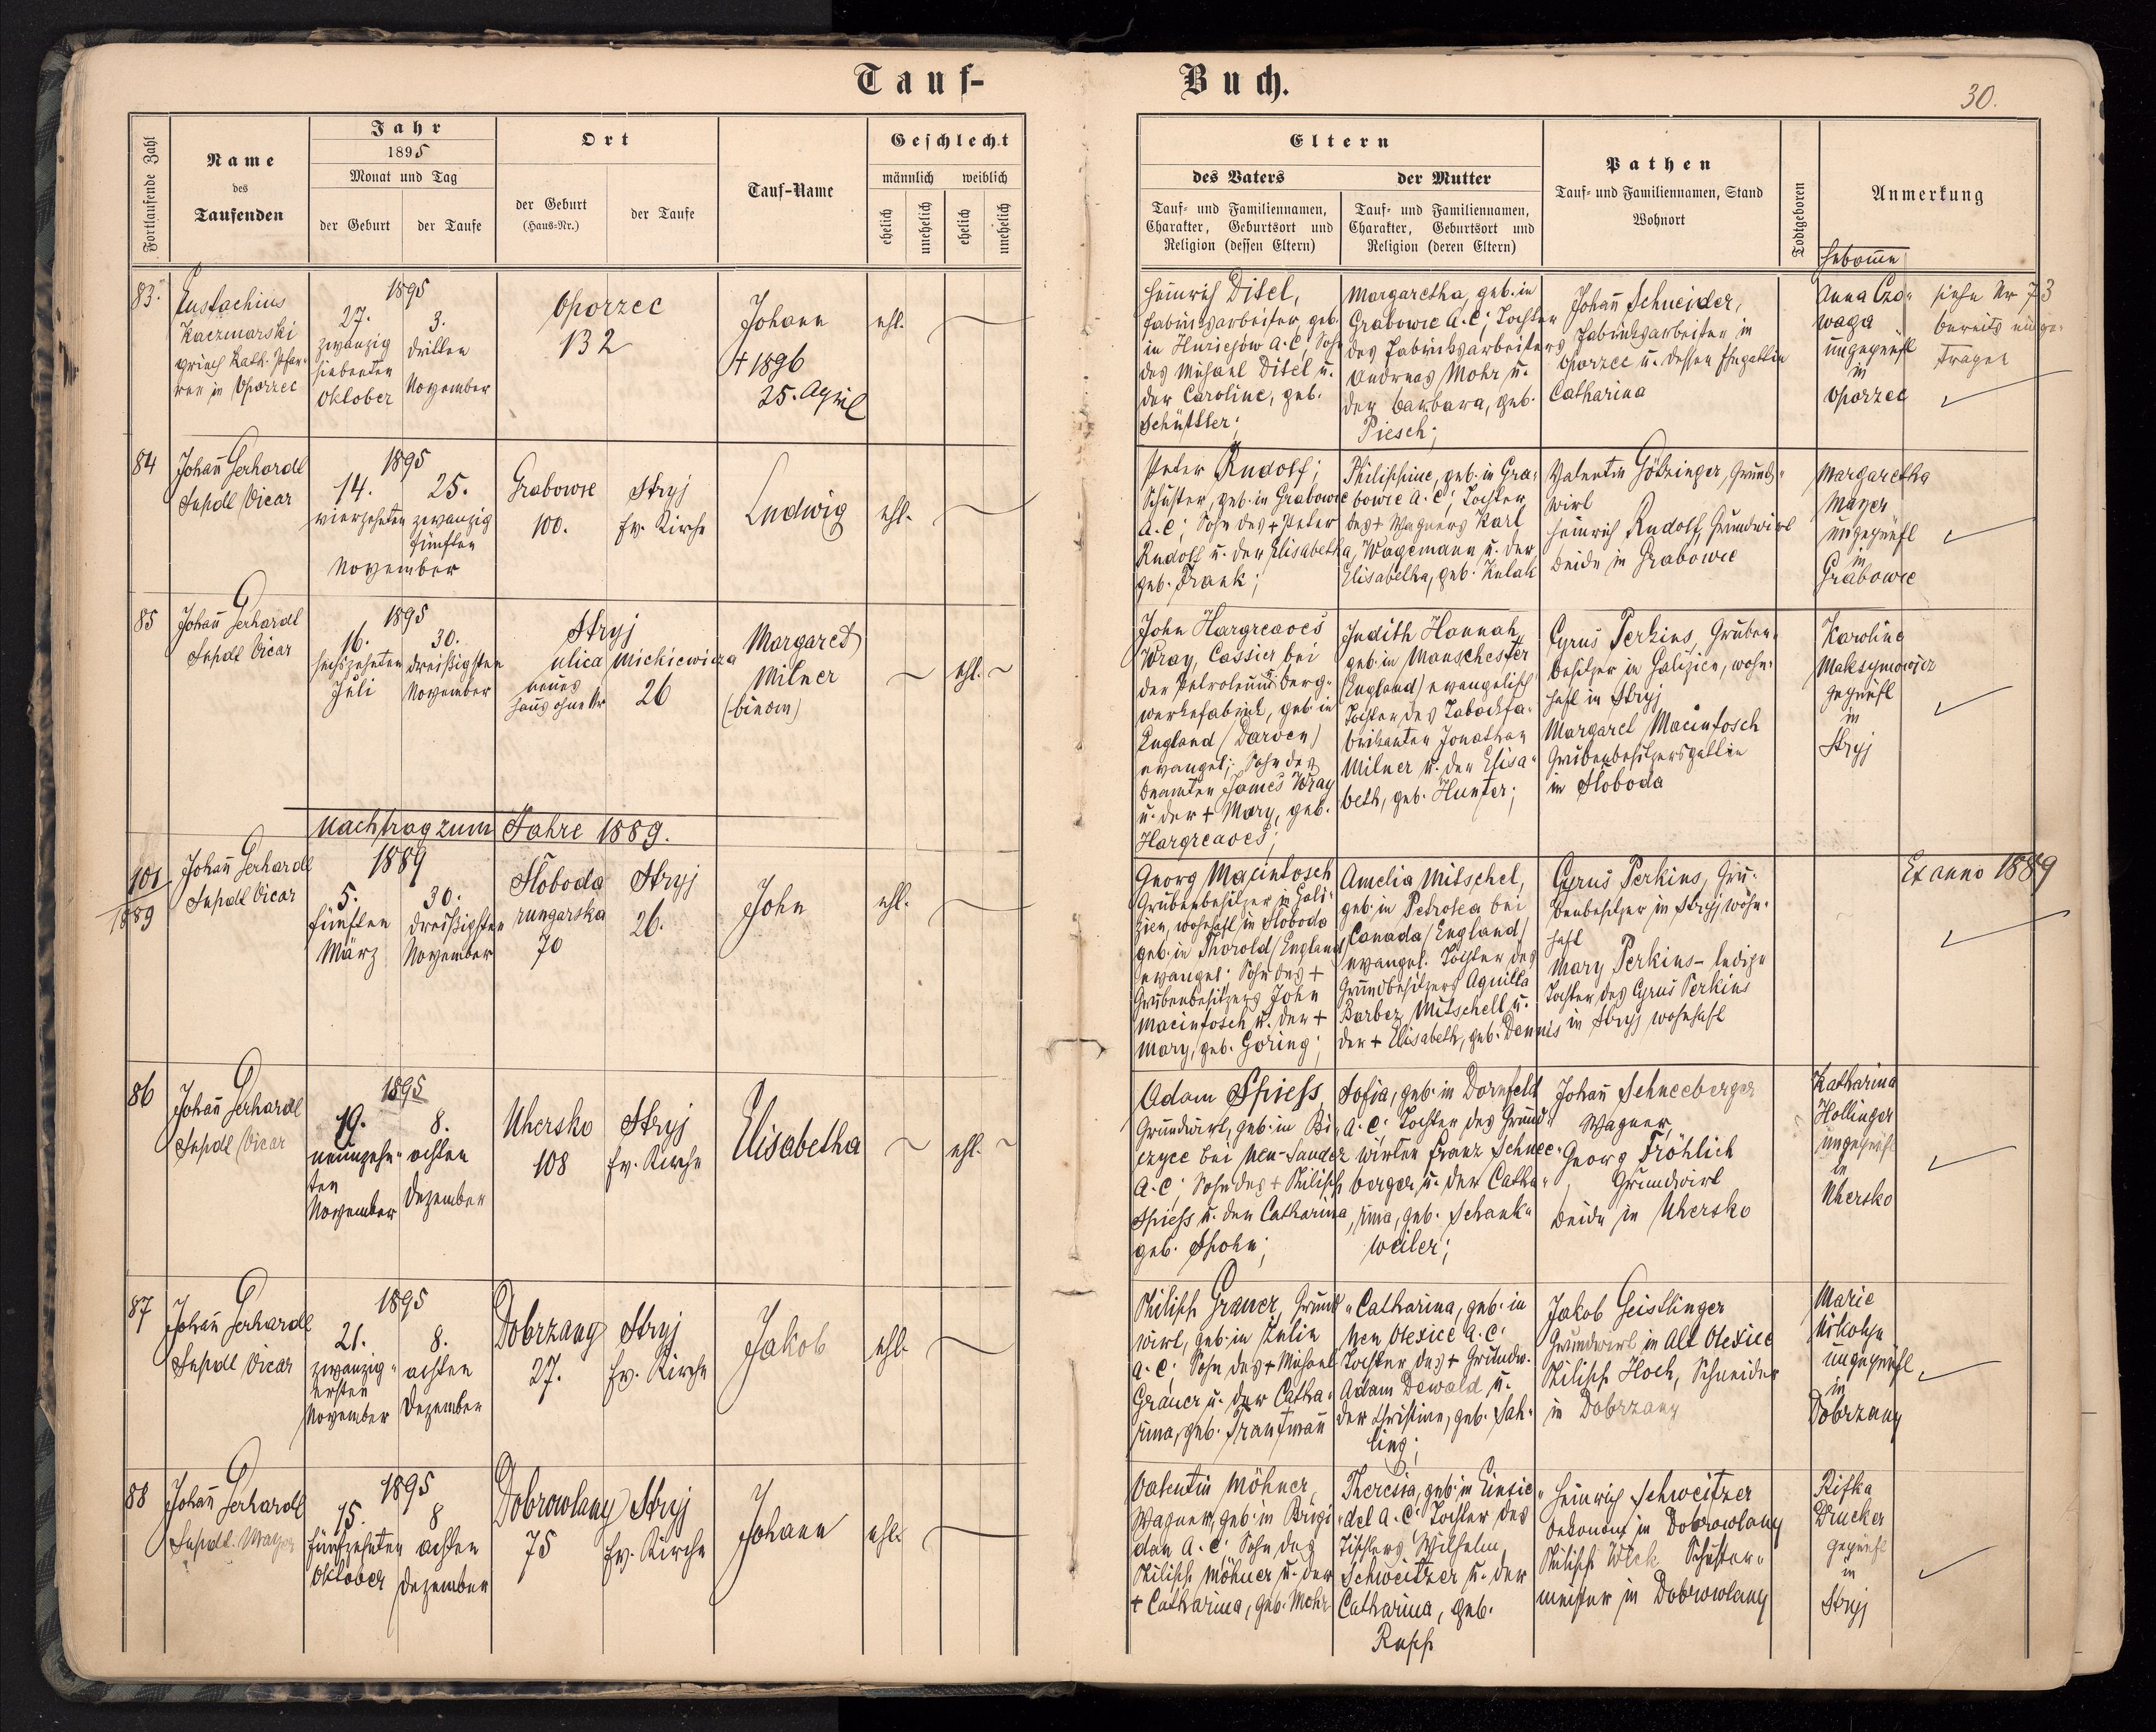 Tauf-
Buch.
30.
Fortlaufende Zahl
Name
des
Taufenden
Jahr
1895
Monat und Tag
der Geburt
der Taufe
Ort
der Geburt
(Haus-Nr.)
der Taufe
Tauf-Name
Geschlecht
männlich weiblich
ehelich
unehelich
ehelich
unehelich
Eltern
des Vaters
der Mutter
Tauf- und Familiennamen,
Charakter, Geburtsort und
Religion (dessen Eltern)
Tauf- und Familiennamen,
Charakter, Geburtsort und
Religion (deren Eltern)
Pathen
Tauf- und Familiennamen, Stand
Wohnort
Todtgeboren
Anmerkung
Hebame
83.
Eustachius
Kaczmarski
griech. Kath. Pfar-
rer in Oporzec
1895
27.
zwanzig
siebenten
Oktober
3.
dritten
November
Oporzec
132
Johann
+ 1896
25. April
ehl.
Heinrich Ditel,
Fabriksarbeiter, geb.
in Huziejów A.C. Sohn
des Michael Ditel u.
der Caroline, geb.
Schüttler;
Margaretha, geb. in
Grabowce A.C; Tochter
des Fabriksarbeiters
Andreas Mohr u.
der Barbara, geb.
Piesch;
Johañ Schneider,
Fabriksarbeiter in
Oporzec u. dessen Ehegattin
Catharina
Anna Czo-
waga
ungeprüft
in
Oporzec
siehe Nr 73
bereits einge-
tragen
84
Johañ Gerhardt
Supdt Vicar
1895
14.
vierzehnten
25.
zwanzig
fünften
November
Grabowce
100.
Stryj
Ev. Kirche
Ludwig
ehl.
Peter Rudolf;
Schuster, geb. in Grabowce
A.C; Sohn des + Peter
Rudolf u. der Elisabetha,
geb. Frank;
Philippine, geb. in Gra-
bowce A.C; Tochter
des + Wagners Karl
Wagemann u. der
Elisabetha, geb. Kulak
Valentin Götzinger, Grund-
wirt
Heinrich Rudolf, Grundwirt
beide in Grabowce
Margaretha
Mayer
ungeprüft
in
Grabowce
85
Johañ Gerhardt
Supdt Vicar
1895
16.
sechszehnten
Juli
30.
dreißigsten
November
Stryj
ulica Mickiewicza
neues
Haus ohne Nr
26
Margaret
Milner
(binom)
ehl.
John Hargreaves
Wray, Cassier bei
der Petroleum Berg-
werksfabrik, geb. in
England (Darven)
evangel; Sohn des
Beamten James Wray
u. der + Mary, geb.
Hargreaves;
Judith Hannah,
geb. in Manschester
(England) evangelisch
Tochter des Tabackfa-
brikanten Jonathan
Milner u. der Elisa-
beth, geb. Hunter;
Cyrus Perkins, Gruben-
besitzer in Galizien, wohn-
haft in Stryj
Margaret Macintosch
Grubenbesitzersgattin
in Sloboda
Karoline
Maksymowicz
geprüft
in
Stryj
Nachtrag zum Jahre 1889.
101
1889
Johañ Gerhardt
Supdt Vicar
1889
5.
fünften
März
30.
dreißigsten
November
Sloboda
rungurska
70
Stryj
26.
John
ehl.
Georg Macintosch
Grubenbesitzer in Gali-
zien, wohnhaft in Sloboda
geb. in Thorold (England)
evangel. Sohn des +
Grubenbesitzers John
Macintosch u. der +
Mary, geb. Goring;
Amelia Mitschel,
geb. in Petrolea bei
Canada (England)
evangel. Tochter des
Grundbesitzers Aquilla
Barber Mitschell u.
der + Elisabeth, geb. Dennis
Cyrus Perkins, Gru-
benbesitzer in Stryj wohn-
haft
Mary Perkins - ledige
Tochter des Cyrus Perkins
in Stryj wohnhaft
Ex anno 1889
86
Johañ Gerhardt
Supdt Vicar
1895
19.
neunzehn-
ten
November
8.
achten
Dezember
Uhersko
108
Stryj
Ev. Kirche
Elisabetha
ehl.
Adam Spiess,
Grundwirt, geb. in Bi-
czyce bei Neu-Sandez
A.C; Sohn des + Philipp
Spiess u. der Catharina,
geb. Spohn;
Sofia, geb. in Dornfeld
A.C. Tochter des Grund-
wirten Franz Schnee-
berger u. der Catha-
rina, geb. Schank-
weiler;
Johañ Schneeberger
Wagner,
Georg Fröhlich
Grundwirt
beide in Uhersko
Katharina
Hollinger
ungeprüft
in
Uhersko
87
Johañ Gerhardt
Supdt Vicar
1895
21.
zwanzig-
ersten
November
8.
achten
Dezember
Dobrzany
27.
Stryj
Ev. Kirche
Jakob
ehl.
Philipp Grauer, Grund-
wirt, geb. in Zulin
A.C; Sohn des + Michael
Grauer u. der Catha-
rina, geb. Trautmañ
Catharina, geb. in
Neu Olexice A.C.
Tochter des + Grundw.
Adam Dewald u.
der Christine, geb. Sah-
ling;
Jakob Geistlinger
Grundwirt in Alt Olexice
Philipp Hoch, Schneider
in Dobrzany
Marie
ungeprüft
in
Dobrzany
88
Johañ Gerhardt
Supdt.
1895
15.
fünfzehnten
Oktober
8
achten
Dezember
Dobrowlany
75
Stryj
Ev. Kirche
Johann
ehl.
Valentin Möhner,
Wagner, geb. in Brigi-
dau A.C. Sohn des
Philipp Möhner u. der
+ Catharina, geb. Mohr
Theresia, geb. in Einsie-
del A.C. Tochter des
Tischlers Wilhelm
Schweitzer u. der
Catharina, geb.
Rupp
Heinrich Schweitzer
Oekonom in Dobrowlany
Philipp Wick Schuster-
meister in Dobrowlany
Rifka
Drucker
geprüft
in
Stryj